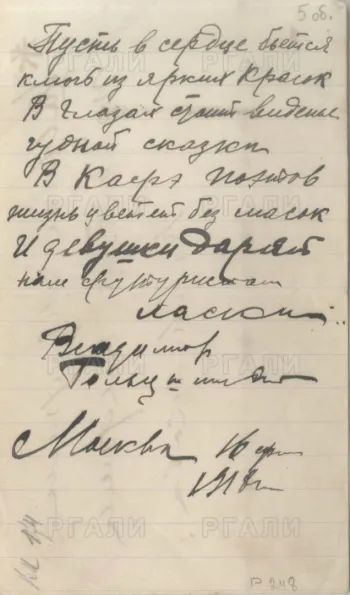 5 об.
Пусть в сердце бьется
клюв из ярких красок
В глазах стоит виденье
чудной сказки
В Кафэ поэтов
жизнь цветет без масок
И девушки дарят
нам футуристам
ласки...
Владимир
Гольцшмидт
Москва 16
1918 г.
РГАЛИ
РГАЛИ
Р 248